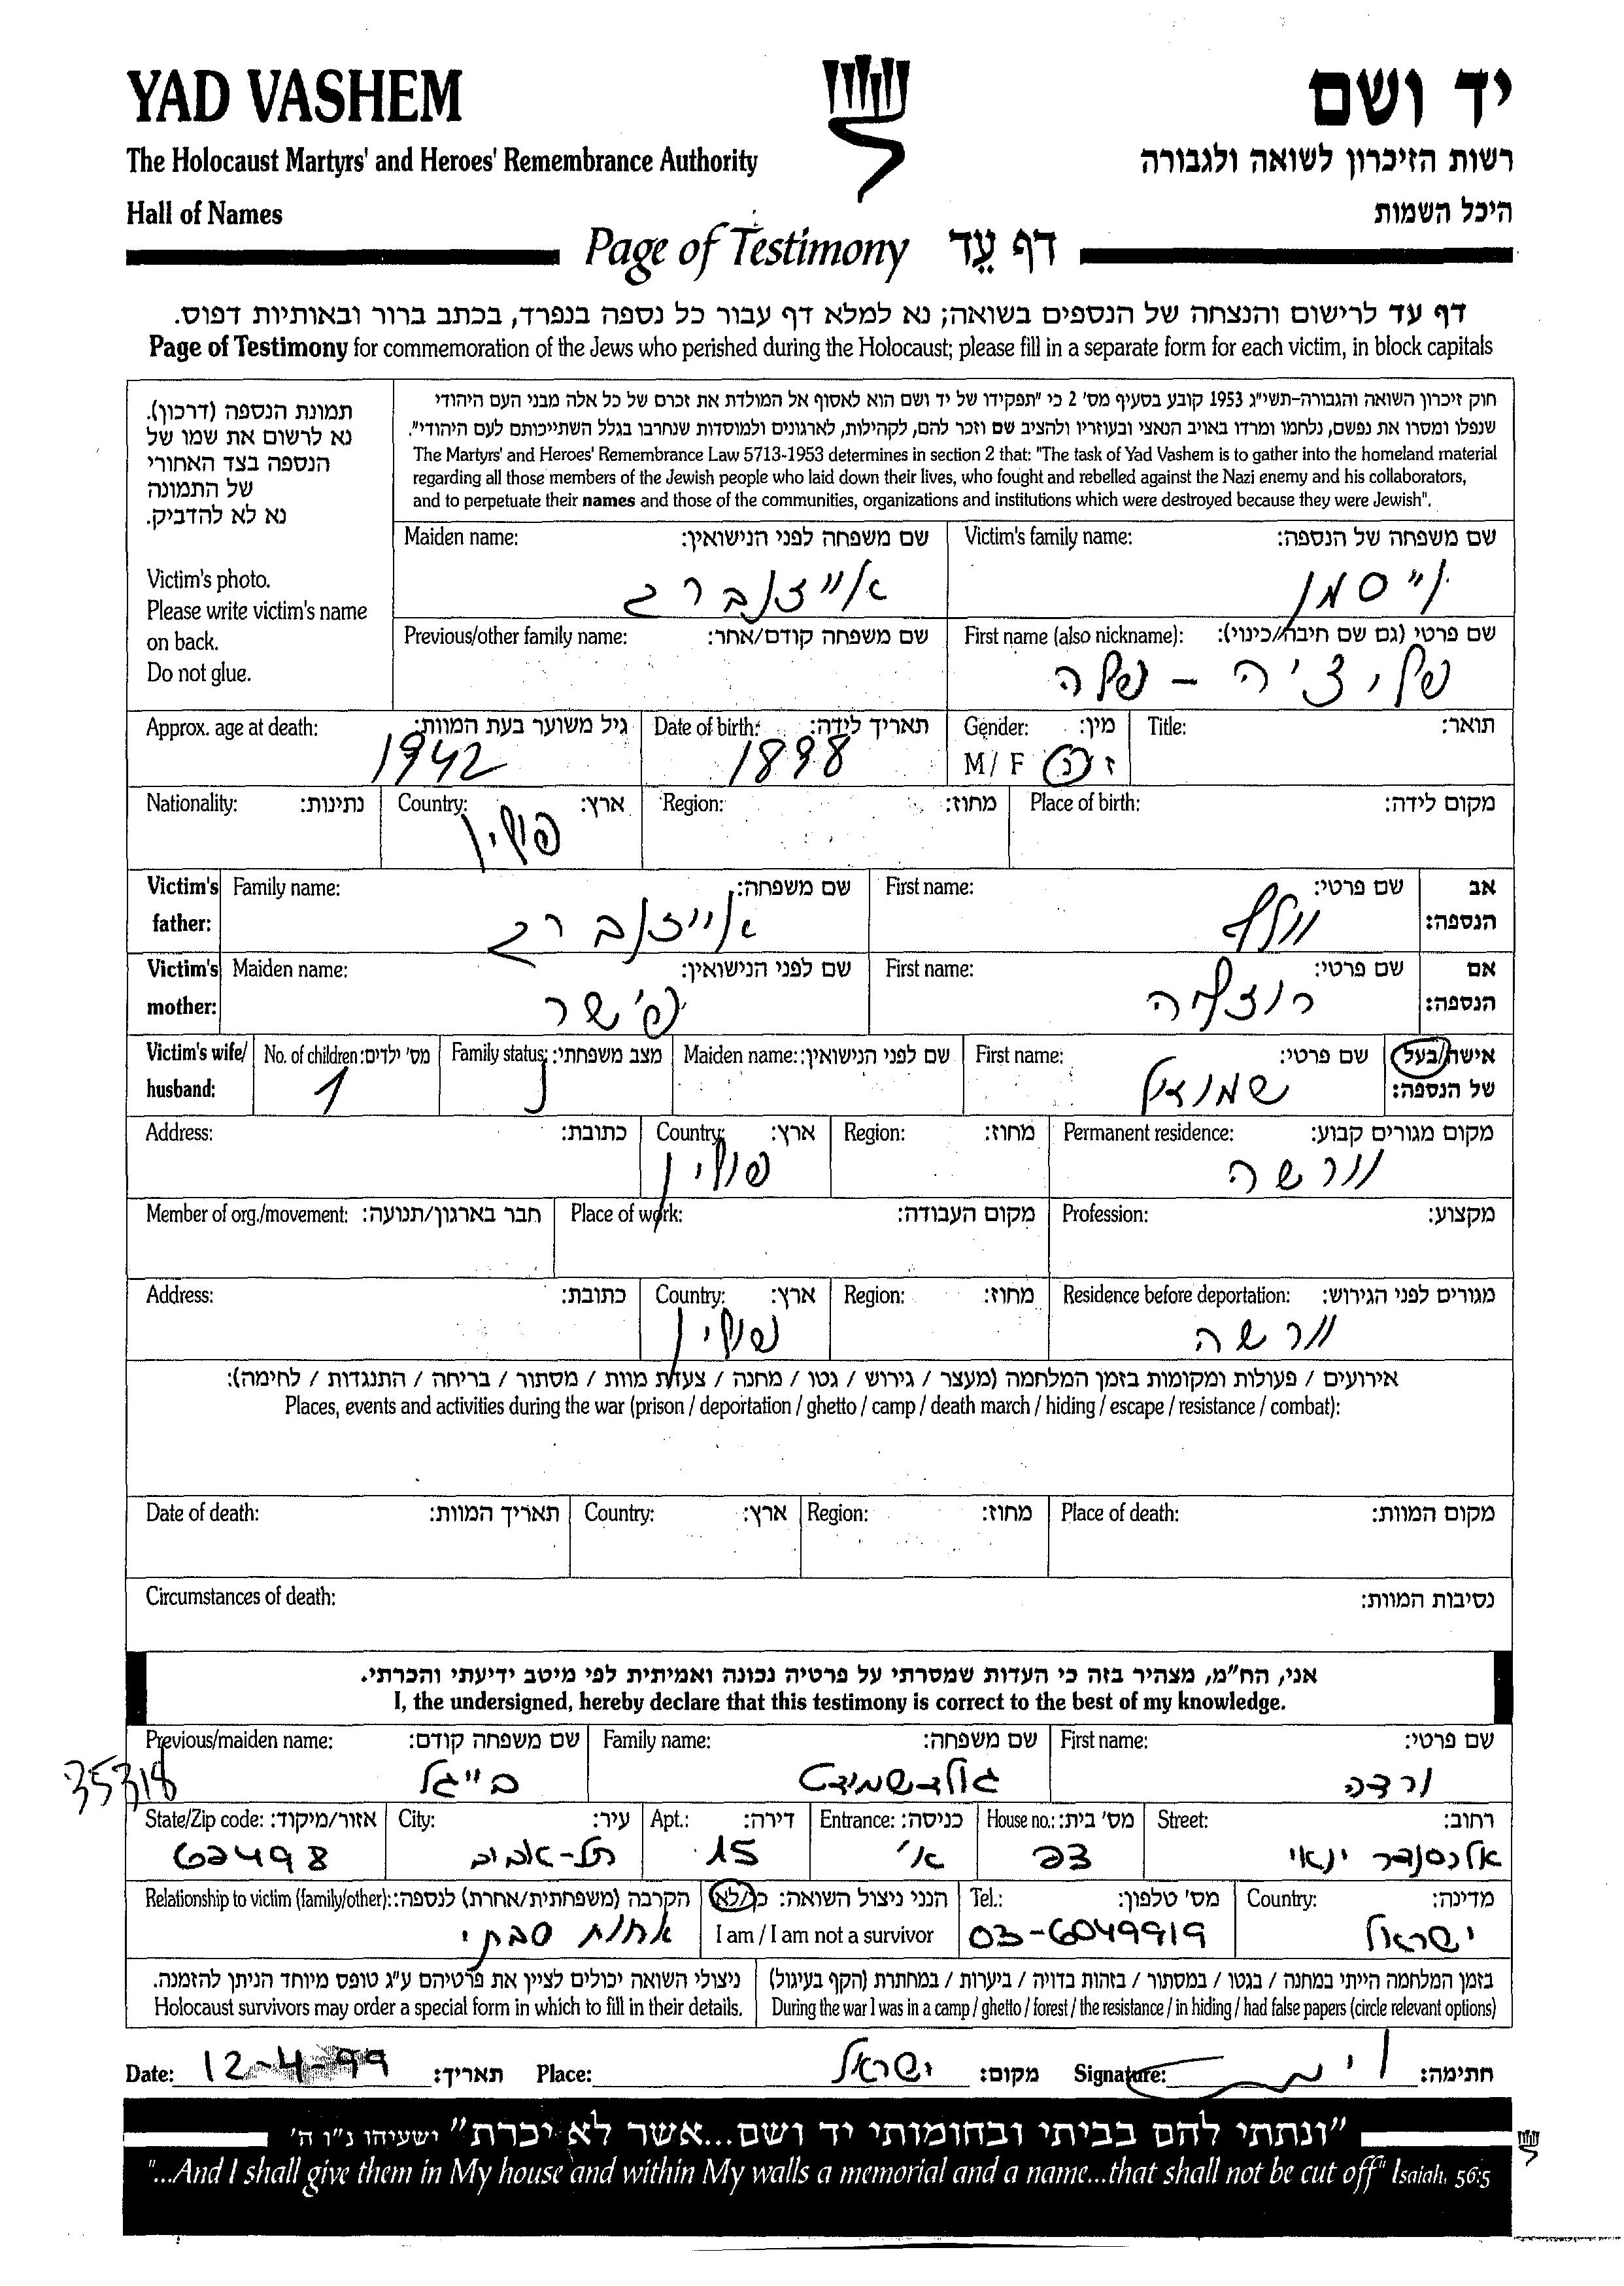 YAD VASHEM יד ושם
The Holocaust Martyrs' and Heroes' Remembrance Authority רשות הזיכרון לשואה ולגבורה
Hall of Names היכל השמות
Page of Testimony דף עֵד
דף עד לרישום והנצחה של הנספים בשואה; נא למלא דף עבור כל נספה בנפרד, בכתב ברור ובאותיות דפוס.
Page of Testimony for commemoration of the Jews who perished during the Holocaust; please fill in a separate form for each victim, in block capitals
תמונת הנספה (דרכון).
נא לרשום את שמו של
הנספה בצד האחורי
של התמונה
נא לא להדביק.
Victim's photo.
Please write victim's name
on back.
Do not glue.
חוק זיכרון השואה והגבורה-תשי"ג 1953 קובע בסעיף מס' 2 כי "תפקידו של יד ושם הוא לאסוף אל המולדת את זכרם של כל אלה מבני העם היהודי
שנפלו ומסרו את נפשם, נלחמו ומרדו באויב הנאצי ובעוזריו ולהציב שם וזכר להם, לקהילות, לארגונים ולמוסדות שנחרבו בגלל השתייכותם לעם היהודי".
The Martyrs' and Heroes' Remembrance Law 5713-1953 determines in section 2 that: "The task of Yad Vashem is to gather into the homeland material
regarding all those members of the Jewish people who laid down their lives, who fought and rebelled against the Nazi enemy and his collaborators,
and to perpetuate their names and those of the communities, organizations and institutions which were destroyed because they were Jewish".
שם משפחה של הנספה: Victim's family name: שם משפחה לפני הנישואין: Maiden name:
וייסמן אייזנברג
שם פרטי (גם שם חיבה/כינוי): First name (also nickname): שם משפחה קודם/אחר: Previous/other family name:
פליציה - פלה
תואר: Title: מין: Gender: תאריך לידה: Date of birth: גיל משוער בעת המוות: Approx. age at death:
ז / נ M / F 1898 1942
מקום לידה: Place of birth: מחוז: Region: ארץ: Country: נתינות: Nationality:
פולין
אב שם פרטי: First name: שם משפחה: Family name: Victim's
הנספה: וולף אייזנברג father:
אם שם פרטי: First name: שם לפני הנישואין: Maiden name: Victim's
הנספה: רוזליה פישר mother:
אישה/בעל שם פרטי: First name: שם לפני הנישואין: Maiden name: מצב משפחתי: Family status: מס' ילדים: No. of children: Victim's wife/
של הנספה: שמואל נ 1 husband:
מקום מגורים קבוע: Permanent residence: מחוז: Region: ארץ: Country: כתובת: Address:
וורשה פולין
מקצוע: Profession: מקום העבודה: Place of work: חבר בארגון/תנועה: Member of org./movement:
מגורים לפני הגירוש: Residence before deportation: מחוז: Region: ארץ: Country: כתובת: Address:
וורשה פולין
אירועים / פעולות ומקומות בזמן המלחמה (מעצר / גירוש / גטו / מחנה / צעדת מוות / מסתור / בריחה / התנגדות / לחימה):
Places, events and activities during the war (prison / deportation / ghetto / camp / death march / hiding / escape / resistance / combat):
מקום המוות: Place of death: מחוז: Region: ארץ: Country: תאריך המוות: Date of death:
נסיבות המוות: Circumstances of death:
אני, הח"מ, מצהיר בזה כי העדות שמסרתי על פרטיה נכונה ואמיתית לפי מיטב ידיעתי והכרתי.
I, the undersigned, hereby declare that this testimony is correct to the best of my knowledge.
שם פרטי: First name: שם משפחה: Family name: שם משפחה קודם: Previous/maiden name:
ורדה גולדשמידט בייגל 35318
רחוב: Street: מס' בית: House no.: כניסה: Entrance: דירה: Apt.: עיר: City: אזור/מיקוד: State/Zip code:
אלכסנדר ינאי 23 א' 15 תל-אביב 62498
מדינה: Country: מס' טלפון: Tel.: הנני ניצול השואה: כן/לא הקרבה (משפחתית/אחרת) לנספה: Relationship to victim (family/other):
ישראל 03-6049919 I am / I am not a survivor אחות סבתי
בזמן המלחמה הייתי במחנה / בגטו / במסתור / בזהות בדויה / ביערות / במחתרת (הקף בעיגול) ניצולי השואה יכולים לציין את פרטיהם ע"ג טופס מיוחד הניתן להזמנה.
During the war I was in a camp / ghetto / forest / the resistance / in hiding / had false papers (circle relevant options) Holocaust survivors may order a special form in which to fill in their details.
חתימה: Signature: מקום: ישראל Place: תאריך: 12-4-99 Date:
"ונתתי להם בביתי ובחומותי יד ושם...אשר לא יכרת" ישעיהו נ"ו ה'
"...And I shall give them in My house and within My walls a memorial and a name...that shall not be cut off" Isaiah, 56:5